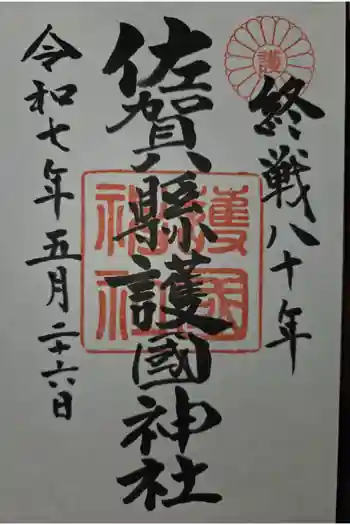 終戦八十年
佐賀縣護國神社
令和七年五月二十六日
護
護國
神社